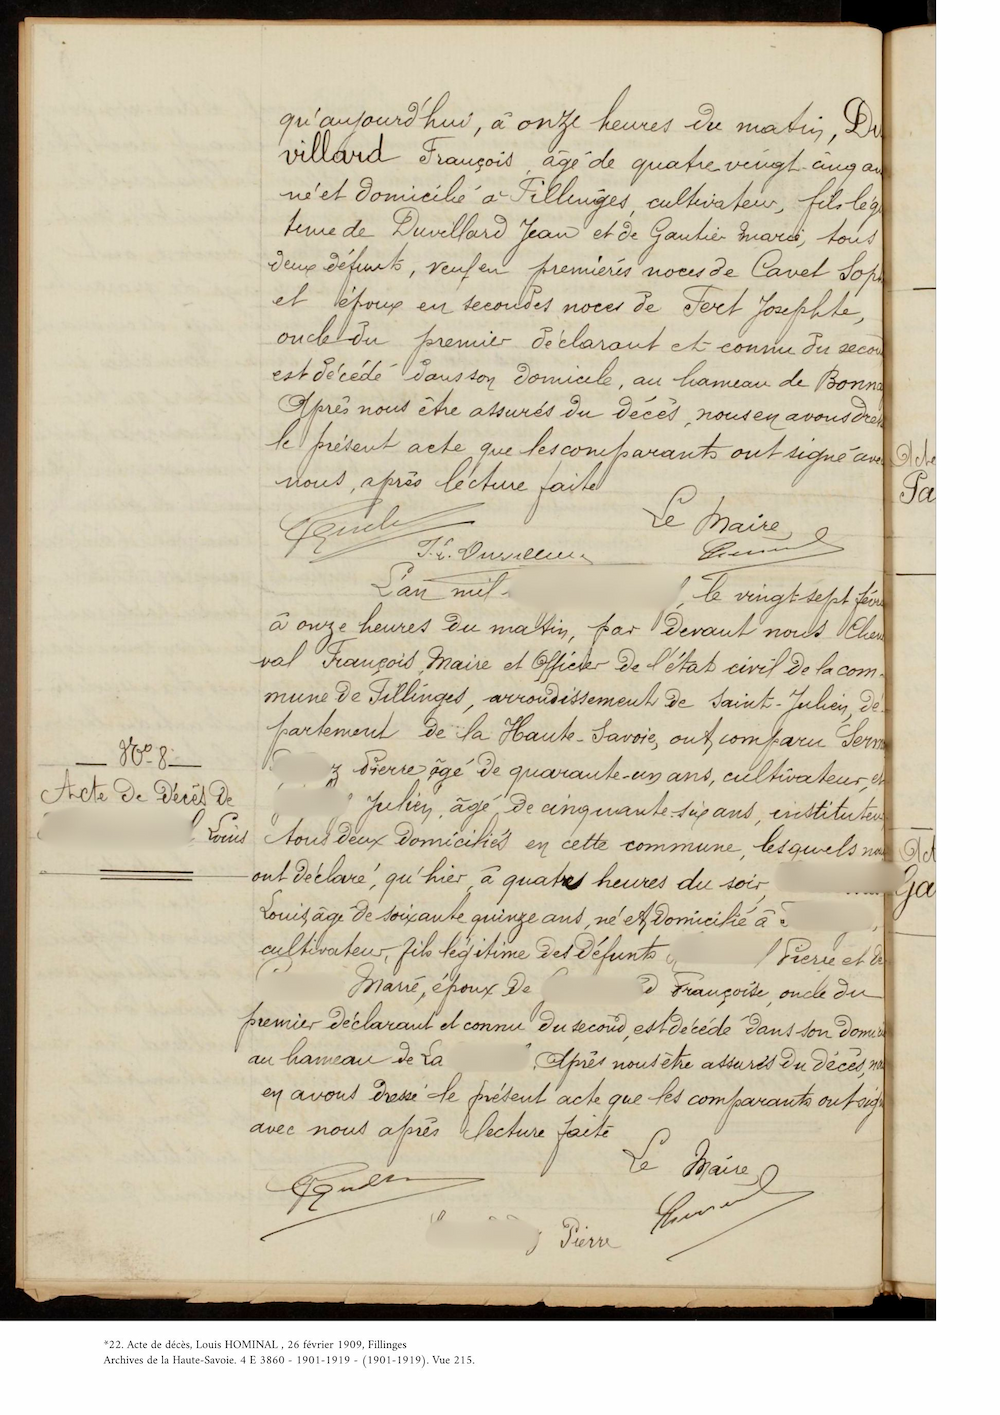 qu'aujourd'hui, à onze heures du matin, Du
villard François, âgé de quatre vingt-cinq an
né et domicilié à Fillinges, cultivateur, fils légi
time de Duvillard Jean et de Gautier Marie, tous
deux défunts, veuf en premières noces de Cavet Sop
et époux en secondes noces de Fert Josephte,
oncle du premier déclarant et connu du secon
est décédé dans son domicile, au hameau de Bonna
Après nous être assurés du décès, nous en avons dres
le présent acte que les comparants ont signé avec
nous, après lecture faite
Le Maire
L'an mil
, le vingt-sept févri
à onze heures du matin, par devant nous Chene
val François, Maire et Officier de l'état civil de la com-
mune de Fillinges, arrondissement de Saint-Julien, dé-
partement de la Haute-Savoie, ont comparu Serm
No 8
z Pierre âgé de quarante-un ans, cultivateur, et
Acte de décès de
Julien, âgé de cinquante-six ans, instituteur
Louis
tous deux domiciliés en cette commune, lesquels nou
ont déclaré, qu'hier, à quatre heures du soir,
Louis, âgé de soixante quinze ans, né et domicilié à
cultivateur, fils légitime des défunts l Pierre et de
Marie, époux de d Françoise, oncle du
premier déclarant et connu du second, est décédé dans son domici
au hameau de La Après nous être assurés du décès, nou
en avons dressé le présent acte que les comparants ont sign
avec nous après lecture faite
Le Maire
z Pierre
Acte
Pa
Act
Ga
*22. Acte de décès, Louis HOMINAL , 26 février 1909, Fillinges
Archives de la Haute-Savoie. 4 E 3860 - 1901-1919 - (1901-1919). Vue 215.